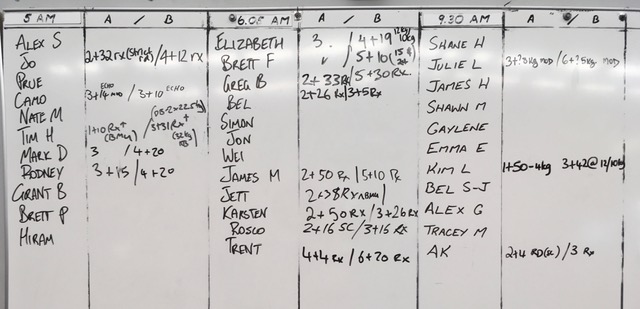 5 AM A / B 6.05 AM A / B 9.30 AM A / B
ALEX S
JO 2+32 RX (STRICT / 4+12 RX
PRUE
CAMO 3+14 / 3+10 ECHO
NATE M
TIM H 1+10 RX+ / 5+31 RX+
MARK D 3 / 4+20
RODNEY 3+15 / 4+20
GRANT B
BRETT P
HIRAM
ELIZABETH 3. / 4+19 12kg/10kg
BRETT F / 5+10
GREG B 2+33 RX / 5+30 RX.
BEL 2+26 RX / 3+5 RX
SIMON
JON
WEI
JAMES M 2+50 RX / 5+10 RX
JETT
KARSTEN 2+50 RX / 3+26 RX
ROSCO 2+16 SC / 3+16 RX
TRENT 4+4 RX / 6+20 RX
SHANE H
JULIE L MOD / MOD
JAMES H
SHAWN M
GAYLENE
EMMA E
KIM L 1+50-4kg 3+42@12/10kg
BEL S-J
ALEX G
TRACEY M
AK 2+4 / 3 RX